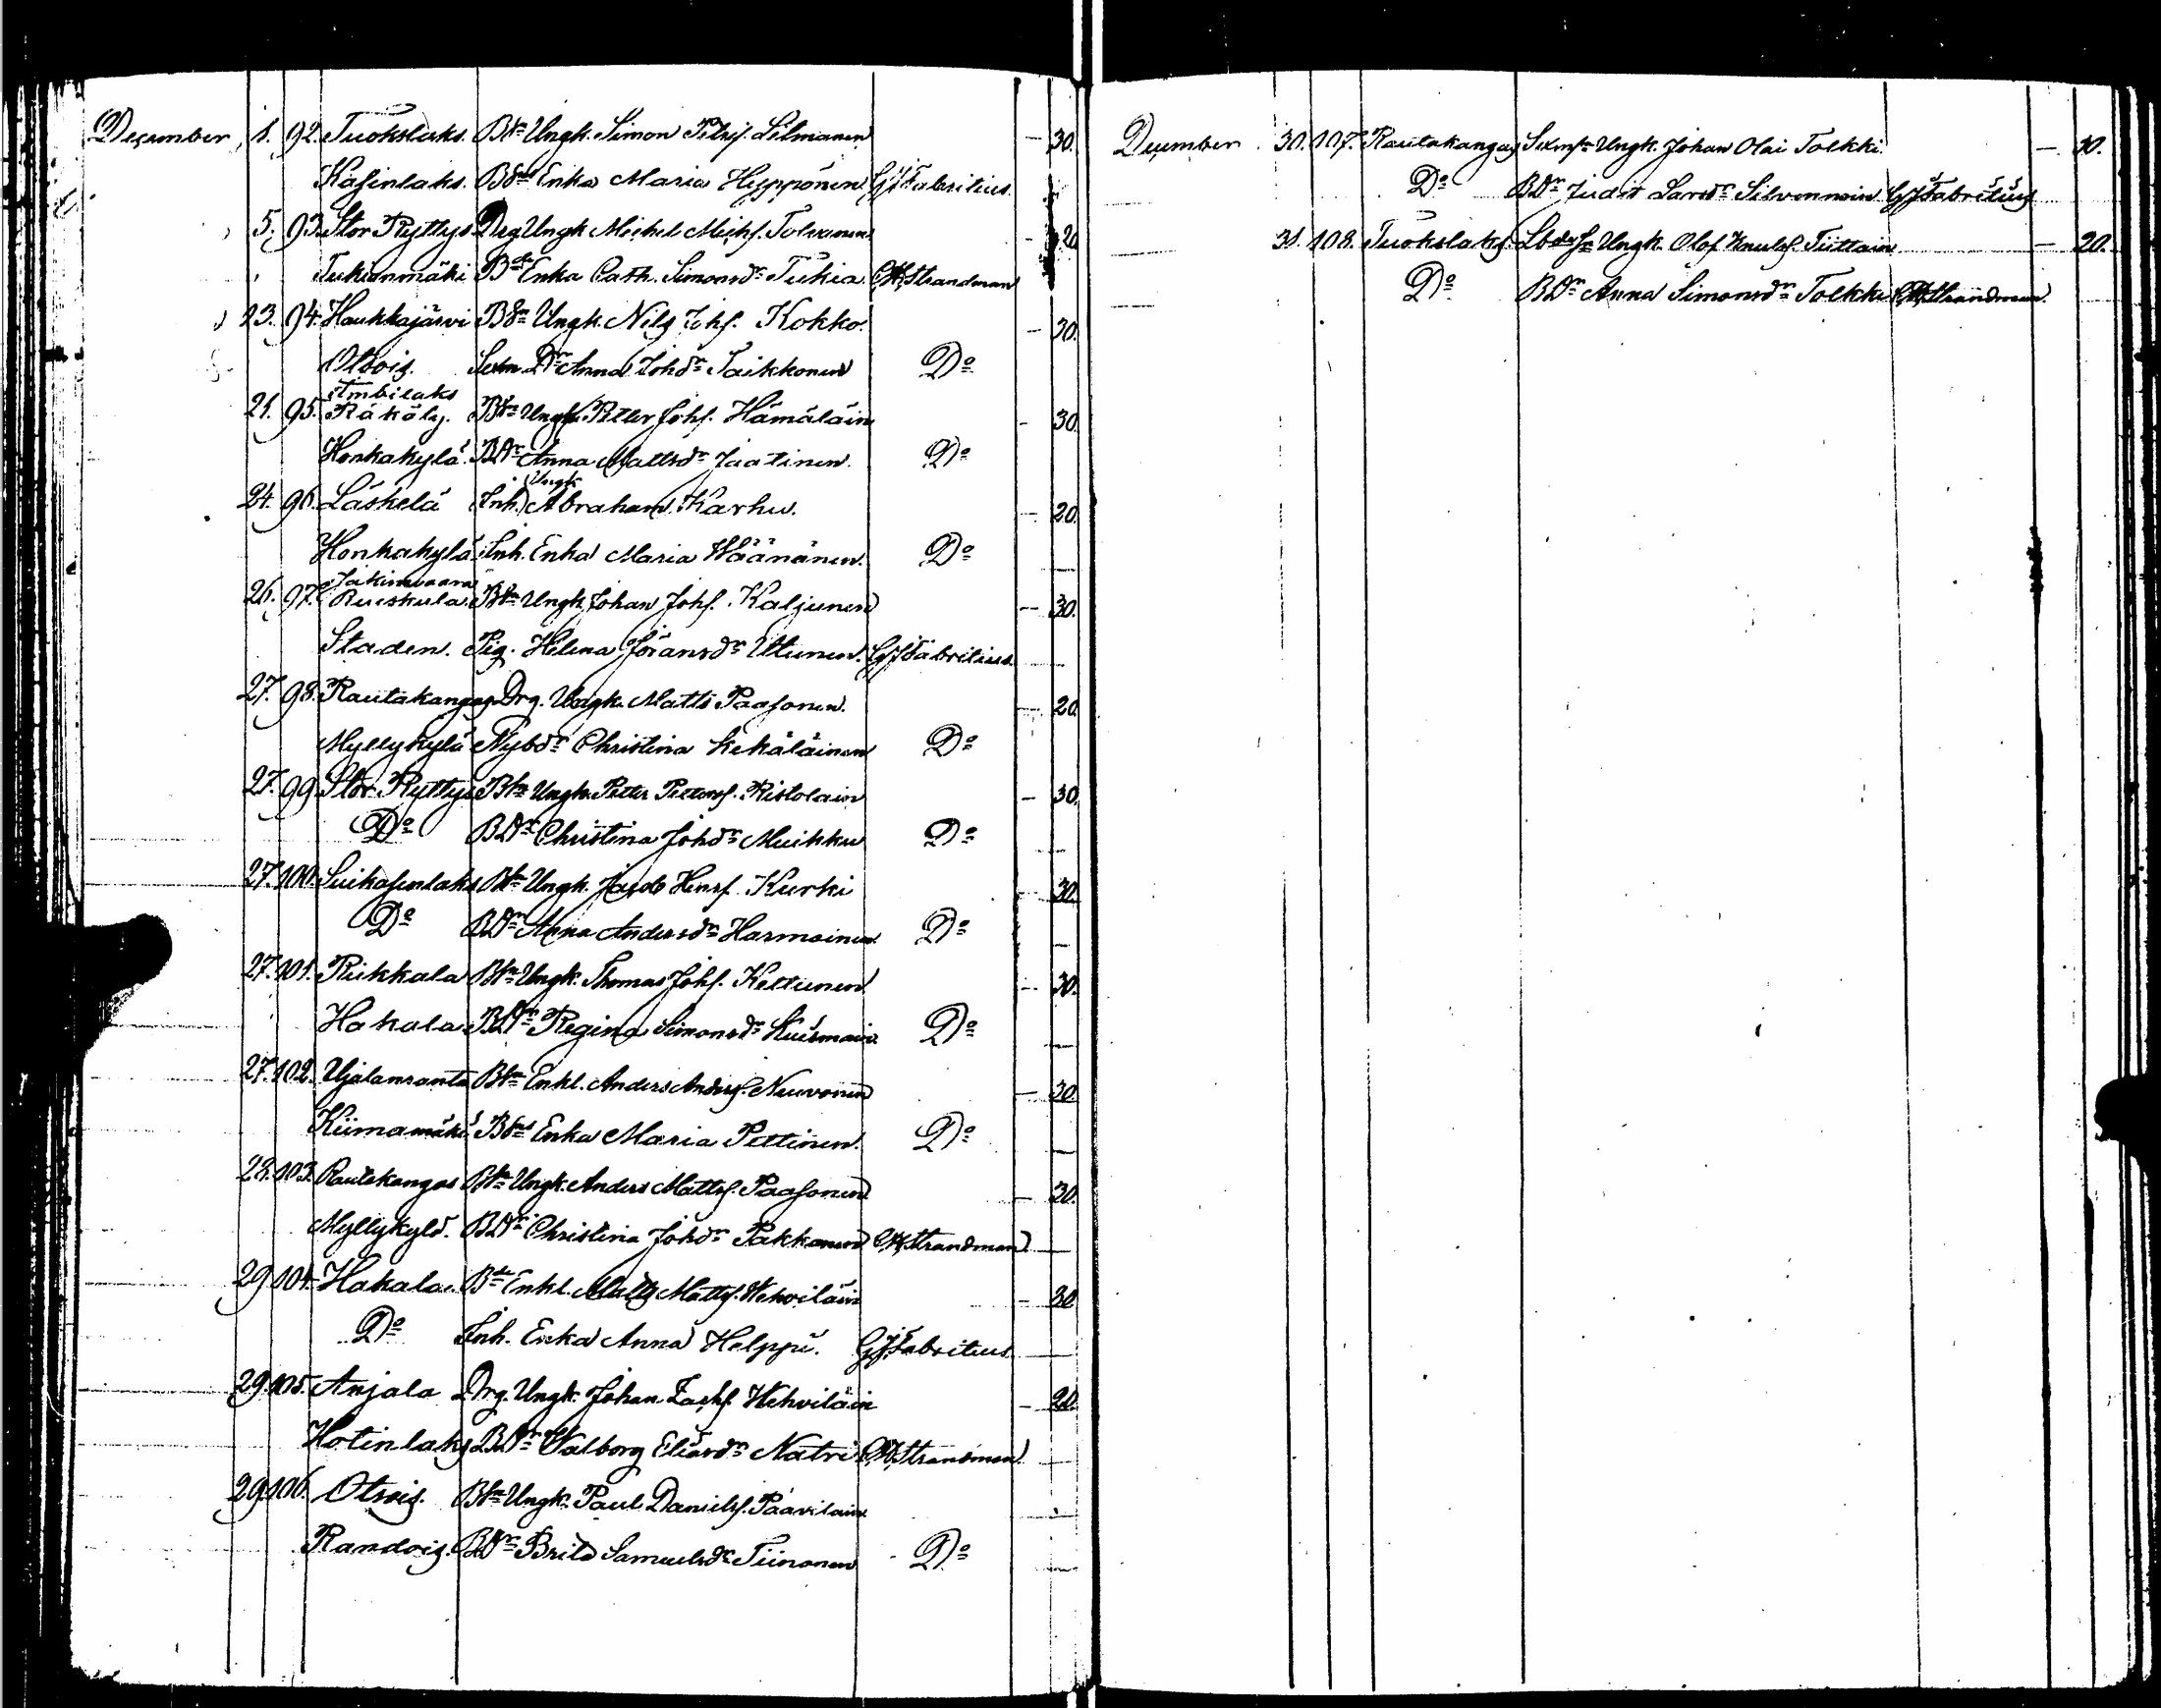 December 1. 92. Tuokslaks. Bsn Ungk. Simon Petrss. Silmanen — 30.
Kasinlaks. Bds Enka Maria Hypponen GJFabritius.
5. 93. Stor Ryttys Drg Ungk Michel Michs. Tolvanen — 20
Tukianmäki Bde Enka Cath. Simonsdr Tukia CHStrandman
23. 94. Haukkajärvi Bsn Ungk. Nils Johs. Kokko. — 30.
Otsois. Sexm. Dr Anna Johdr Taikkonen Do
Ambilaks
24. 95. Räköly. Bsn Ungk. Peter Johs. Hämäläin — 30.
Honkakylä. BDr Anna Mattsdr Jaatinen. Do
Ungk
24. 96. Läskelä Inh. Abraham Karhu. — 20.
Honkakylä. Inh. Enka Maria Wäänänen. Do
Jakimvaara
26. 97. Ruiskula. Bsn Ungk. Johan Johs. Kaljunen — 30.
Staden. Pig. Helena Jöransdr Ittunen. GJFabritius.
27. 98. Rautakangas Drg. Ungk. Matts Paasonen. — 20.
Myllykylä Nybdr Christina Kekäläinen Do
27. 99. Stor. Ryttys Bsn Ungk. Petter Petterss. Ristolain — 30.
Do BDr Christina Johdr Muikku Do
27. 100. Suikasenlaks Bsn Ungk. Jacob Henss. Kurki — 30.
Do BDr Anna Andersdr Harmoinen. Do
27. 101. Riekkala Bsn Ungk. Thomas Johs. Kettunen. — 30.
Hakala BDr Regina Simonsdr Kuismain. Do
27. 102. Ujalanranta Bsn Enkl. Anders Anderss. Neuvonen — 30.
Kiimamäki Bds Enka Maria Pettinen. Do
28. 103. Rautakangas Bsn Ungk. Anders Mattss. Paasonen — 30.
Myllykylä. BDr Christina Johdr Pakkanen CHStrandman
29. 104. Hakala. Bde Enkl. Matts Mattss. Wehviläin — 30
Do Inh. Enka Anna Helppi. GJFabritius
29. 105. Anjala Drg. Ungk. Johan Zachs. Wehviläin — 20.
Hotinlaks BDr Walborg Eliasdr Natri CHStrandman
29. 106. Otsois. Bsn Ungk. Paul Danielss. Paavilain
Randois. BDr Brita Samuelsdr Tiinonen Do
December 30. 107. Rautakangas Sexmsn Ungk. Johan Olai Tolkki. — 30.
Do BDr Judit Larsdr Silvennoin GJFabritius
31. 108. Tuokslaks. Lbdssn Ungk. Olof Knutss. Tiittain — 20.
Do BDr Anna Simonsdr Tolkki CHStrandman.